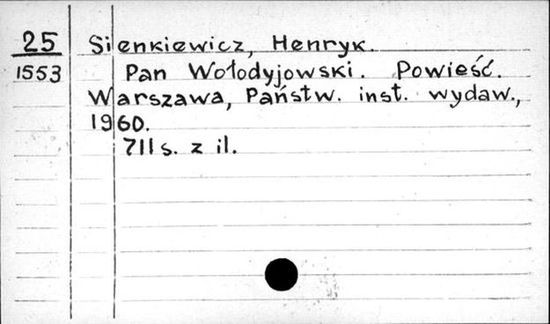 25 Sienkiewicz, Henryk.
1553 Pan Wołodyjowski. Powieść.
Warszawa, Państw. inst. wydaw.,
1960.
711 s. z il.